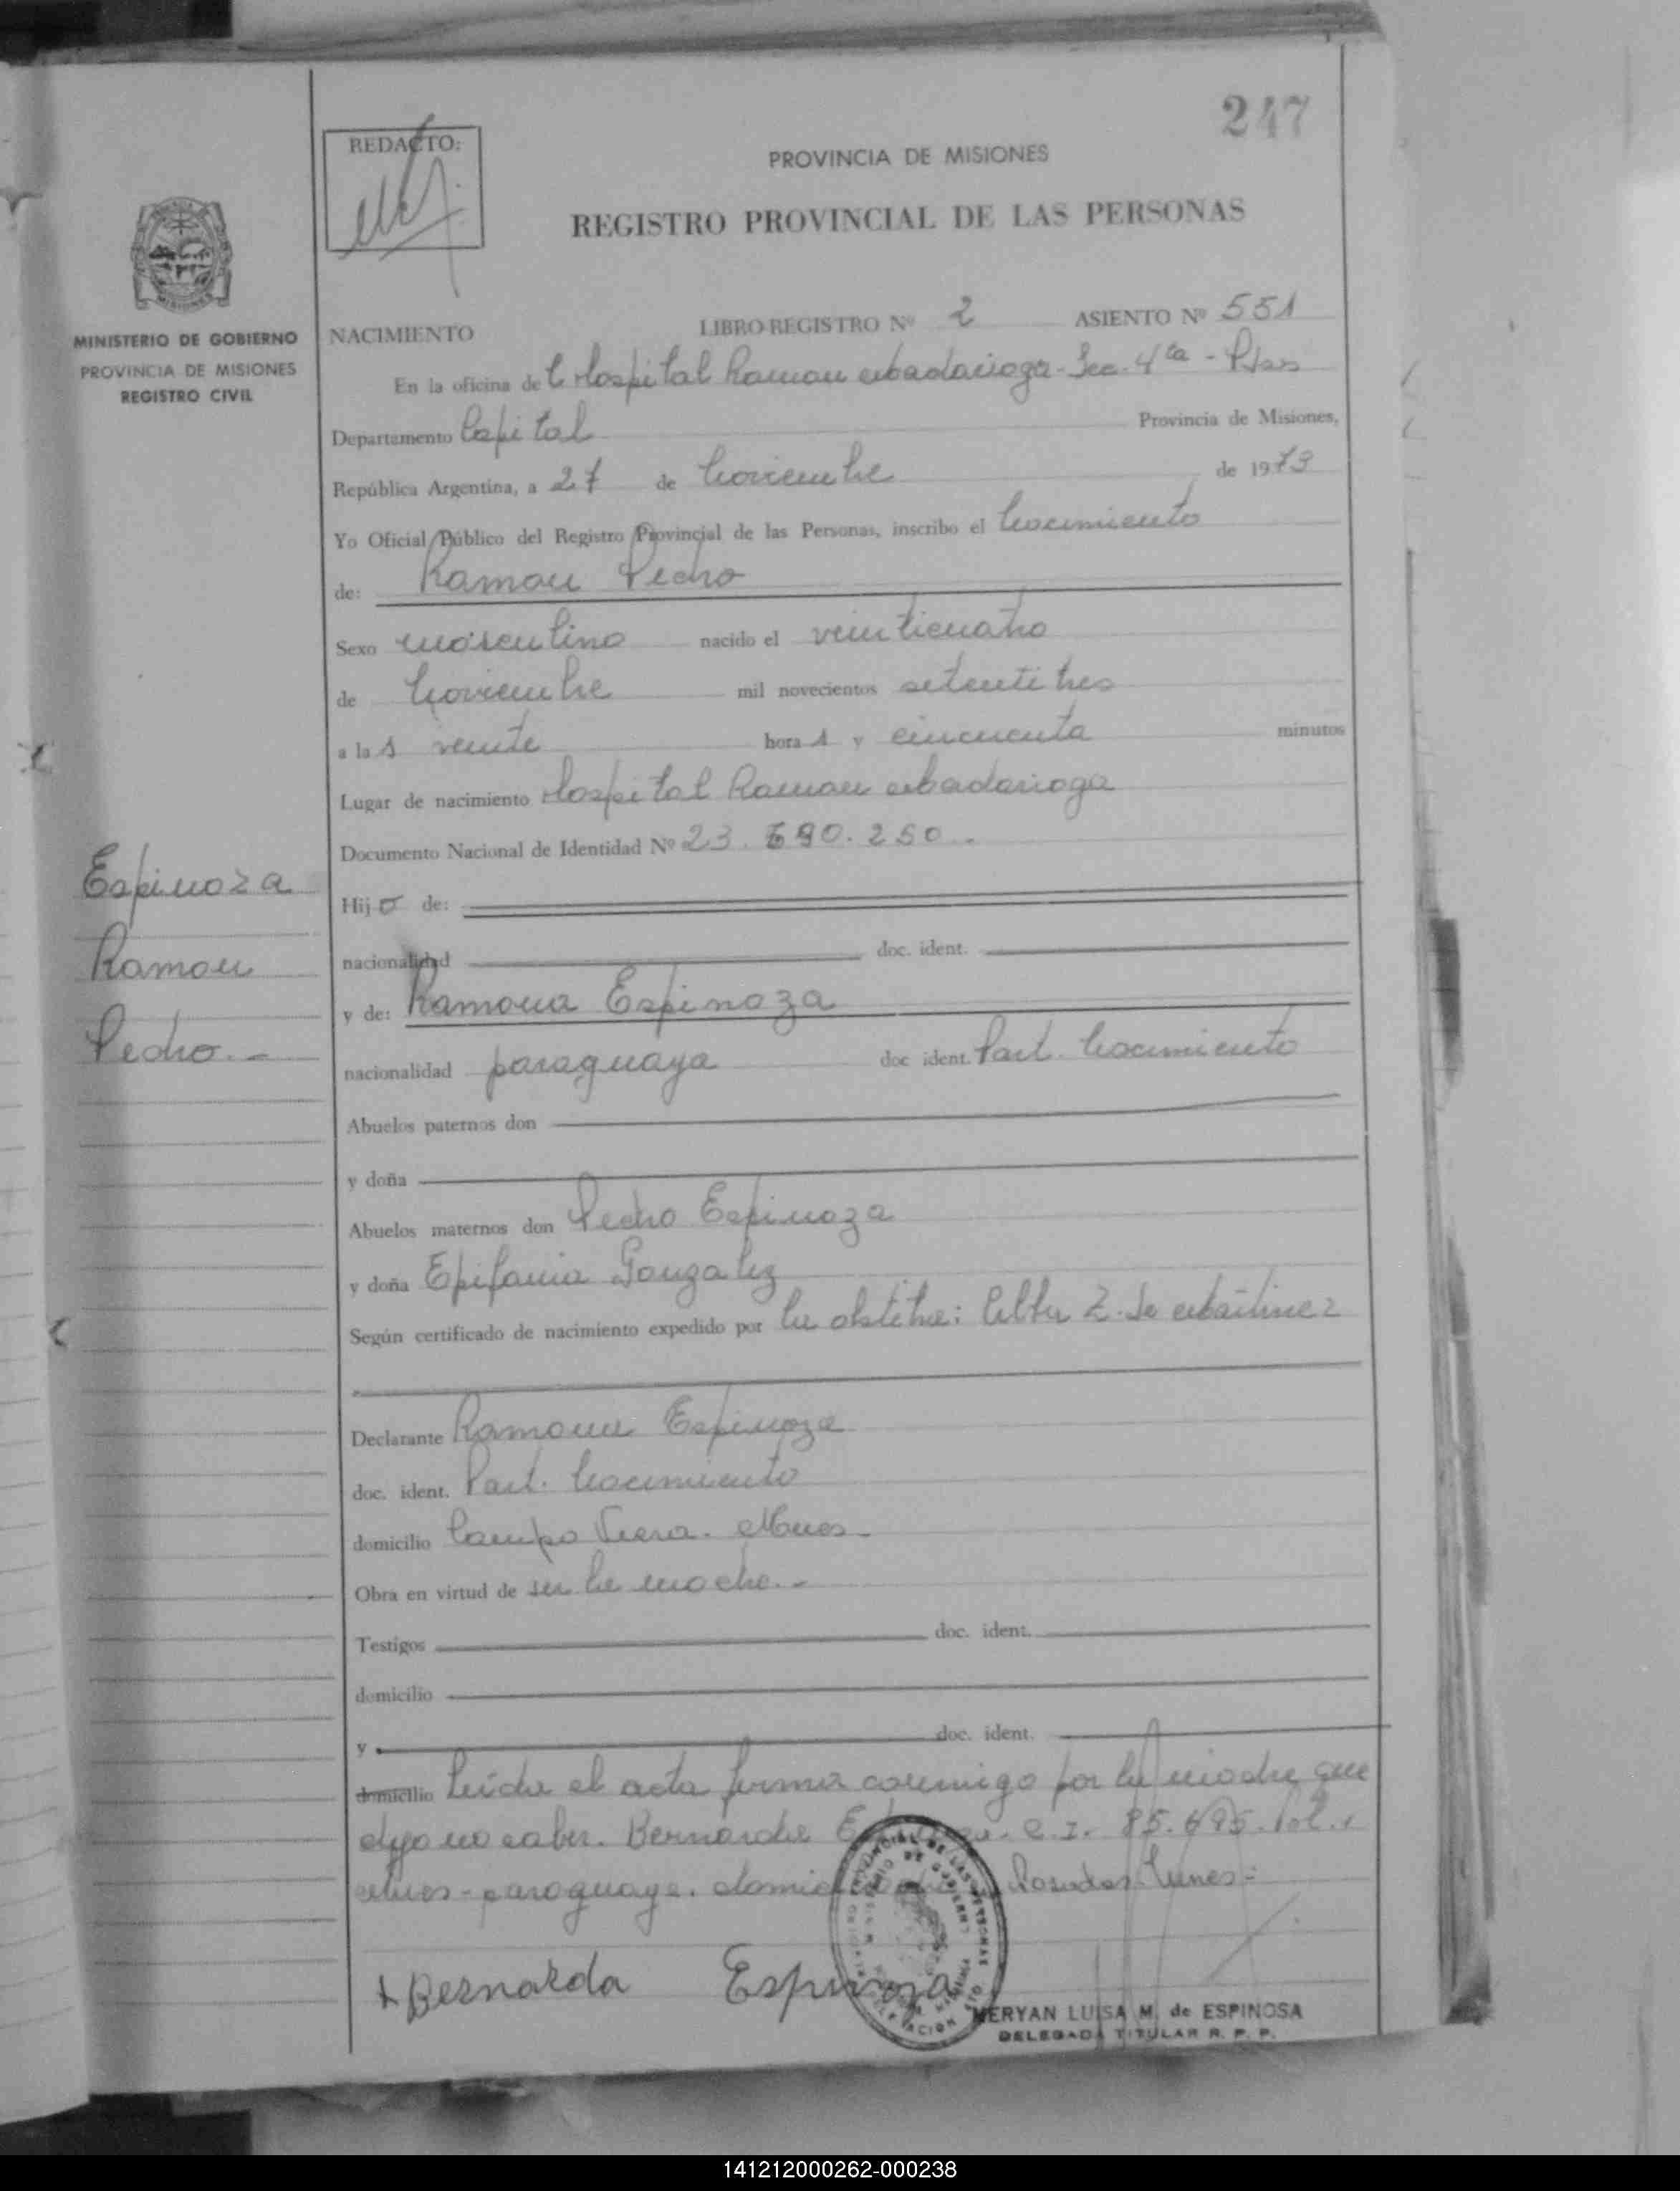 247
REDACTO:
PROVINCIA DE MISIONES
REGISTRO PROVINCIAL DE LAS PERSONAS
MINISTERIO DE GOBIERNO
PROVINCIA DE MISIONES
REGISTRO CIVIL
NACIMIENTO LIBRO REGISTRO Nº 2 ASIENTO Nº 551
En la oficina de Hospital Ramon Madariaga - Sec. 4ta - Pdas
Departamento Capital Provincia de Misiones,
República Argentina, a 27 de Noviembre de 1973
Yo Oficial Público del Registro Provincial de las Personas, inscribo el Nacimiento
de: Ramon Pedro
Sexo masculino nacido el veinticuatro
de Noviembre mil novecientos setentitres
a las veinte horas y cincuenta minutos
Lugar de nacimiento Hospital Ramon Madariaga
Documento Nacional de Identidad Nº 23.690.250.-
Espinoza
Ramon
Pedro.-
Hijo de:
nacionalidad doc. ident.
y de: Ramona Espinoza
nacionalidad paraguaya doc ident. Part. Nacimiento
Abuelos paternos don
y doña
Abuelos maternos don Pedro Espinoza
y doña Epifania Gonzalez
Según certificado de nacimiento expedido por la obstetra: Z. de Martinez
Declarante Ramona Espinoza
doc. ident. Part. Nacimiento
domicilio Campo Viera. Mnes.
Obra en virtud de ser la madre.-
Testigos doc. ident.
domicilio
y doc. ident.
domicilio Leida el acta firma conmigo por la madre que
dijo no saber. Bernarda c.I. 85.695. Pol.
Mnes - paraguaya. Posadas Mnes=
Bernarda Espinoza
MERYAN LUISA M. de ESPINOSA
DELEGADA TITULAR R. P. P.
141212000262-000238